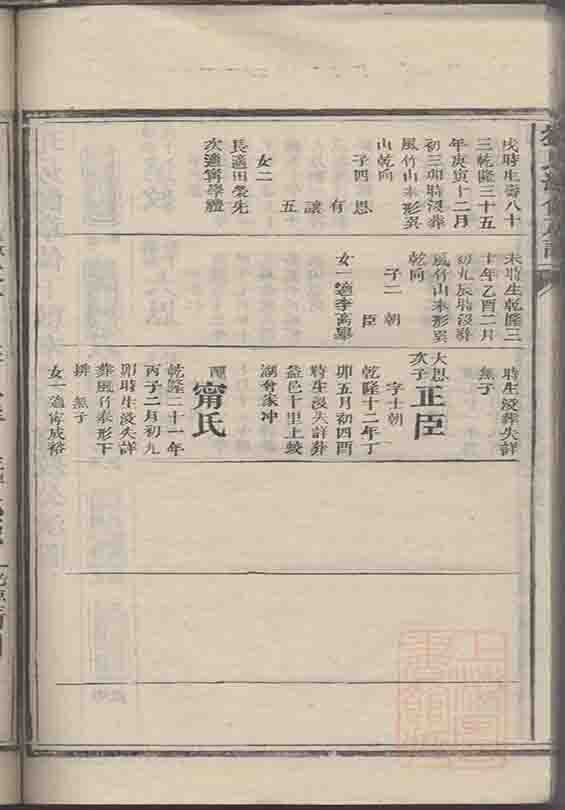 戌時生壽八十
三乾隆三十五
年庚寅十二月
初三卯時沒葬
風竹山木形巽
山乾向
子四 恩
有
讓
五
女二
長適田榮先
次適甯學體
未時生乾隆三
十年乙酉二月
初九辰時沒葬
風竹山木形巽
乾向
子二 朝
臣
女一適李萬舉
時生沒葬失詳
無子
大恩
次子
正臣
字士朝
乾隆十二年丁
卯五月初四酉
時生沒失詳葬
益邑十里上蛟
湖會家冲
配
甯氏
乾隆二十一年
丙子二月初九
卯時生沒失詳
葬風竹泰形下
排 無子
女一適肖成裕
上海圖
書館藏